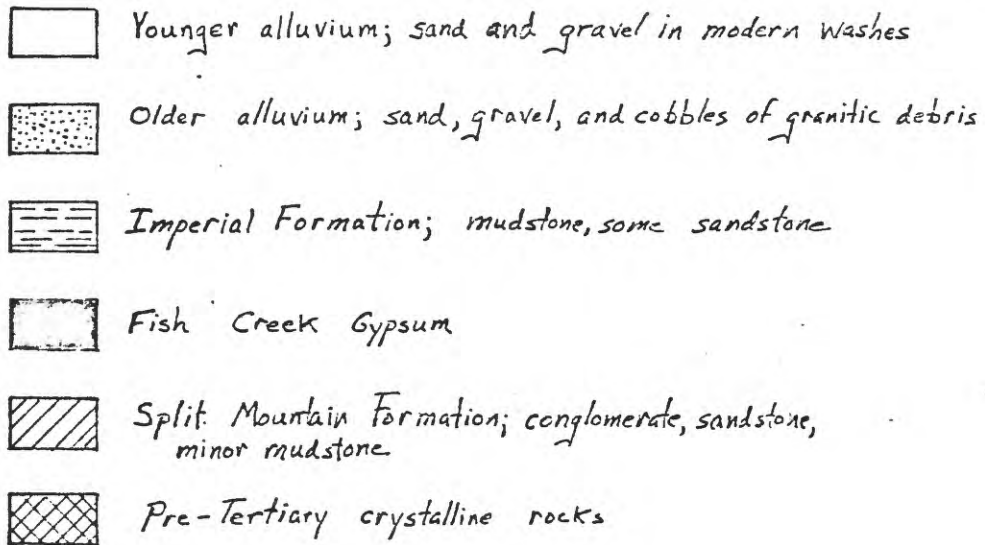 Younger alluvium; sand and gravel in modern washes
Older alluvium; sand, gravel, and cobbles of granitic debris
Imperial Formation; mudstone, some sandstone
Fish Creek Gypsum
Split Mountain Formation; conglomerate, sandstone,
minor mudstone
Pre-Tertiary crystalline rocks